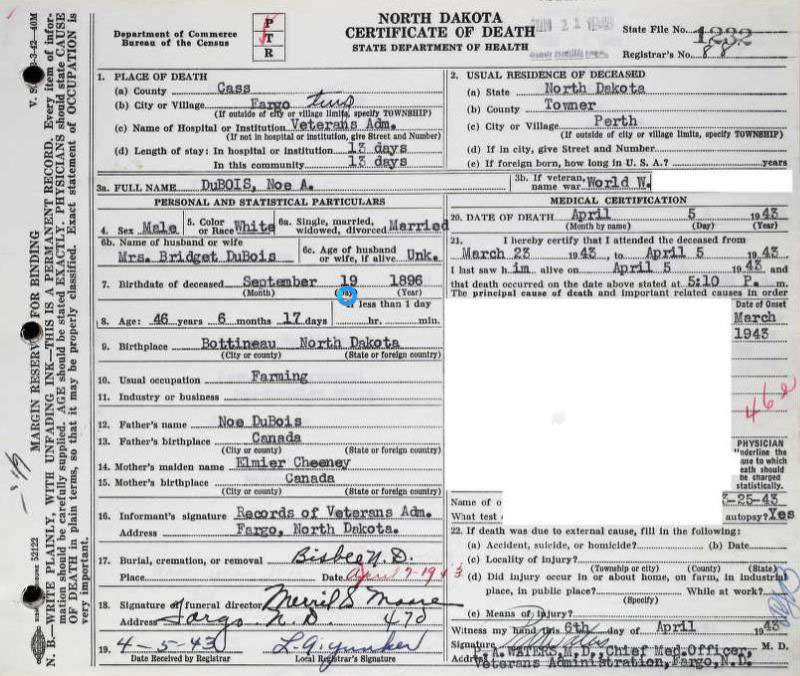 NORTH DAKOTA
CERTIFICATE OF DEATH
STATE DEPARTMENT OF HEALTH
Department of Commerce
Bureau of the Census
P
T
R
State File No. 1232
Registrar's No. 88
1. PLACE OF DEATH
(a) County Cass
(b) City or Village Fargo twp
(If outside of city or village limits, specify TOWNSHIP)
(c) Name of Hospital or Institution Veterans Adm.
(If not in hospital or institution, give Street and Number)
(d) Length of stay: In hospital or institution 13 days
In this community 13 days
2. USUAL RESIDENCE OF DECEASED
(a) State North Dakota
(b) County Towner
(c) City or Village Perth
(If outside of city or village limits, specify TOWNSHIP)
(d) If in city, give Street and Number
(e) If foreign born, how long in U. S. A.? years
3a. FULL NAME DuBOIS, Noe A.
3b. If veteran, name war World W.
PERSONAL AND STATISTICAL PARTICULARS
4. Sex Male 5. Color or Race White 6a. Single, married, widowed, divorced Married
6b. Name of husband or wife
Mrs. Bridget DuBois
6c. Age of husband or wife, if alive Unk.
7. Birthdate of deceased September 19 1896
(Month) (Year)
If less than 1 day
8. Age: 46 years 6 months 17 days hr. min.
9. Birthplace Bottineau North Dakota
(City or county) (State or foreign country)
10. Usual occupation Farming
11. Industry or business
12. Father's name Noe DuBois
13. Father's birthplace Canada
(City or county) (State or foreign country)
14. Mother's maiden name Elmier Cheeney
15. Mother's birthplace Canada
(City or county) (State or foreign country)
16. Informant's signature Records of Veterans Adm.
Address Fargo, North Dakota.
17. Burial, cremation, or removal Bisbee N.D.
Place Date April 7-1943
18. Signature of funeral director Merril S Moore
Address Fargo N.D. 470
19. 4-5-43 L.A. Yunker
Date Received by Registrar Local Registrar's Signature
MEDICAL CERTIFICATION
20. DATE OF DEATH April 5 1943
(Month by name) (Day) (Year)
21. I hereby certify that I attended the deceased from
March 23 1943, to April 5 1943.
I last saw him alive on April 5 1943 and
that death occurred on the date above stated at 5:10 P. m.
The principal cause of death and important related causes in order
Date of Onset
March
1943
PHYSICIAN
Underline the
cause to which
death should
be charged
statistically.
Name of o 3-25-43
What test autopsy? Yes
22. If death was due to external cause, fill in the following:
(a) Accident, suicide, or homicide? (b) Date
(c) Locality of injury?
(Township or city) (County) (State)
(d) Did injury occur in or about home, on farm, in industrial
place, in public place? While at work?
(Specify)
(e) Means of injury?
Witness my hand this 6th day of April 1943
Signature M. D.
P.A. WATERS, M.D., Chief Med. Officer,
Address Veterans Administration, Fargo, N.D.
MARGIN RESERV FOR BINDING
N. B.—WRITE PLAINLY, WITH UNFADING INK—THIS IS A PERMANENT RECORD. Every item of infor-
mation should be carefully supplied. AGE should be stated EXACTLY. PHYSICIANS should state CAUSE
OF DEATH in plain terms, so that it may be properly classified. Exact statement of OCCUPATION is
very important.
52122